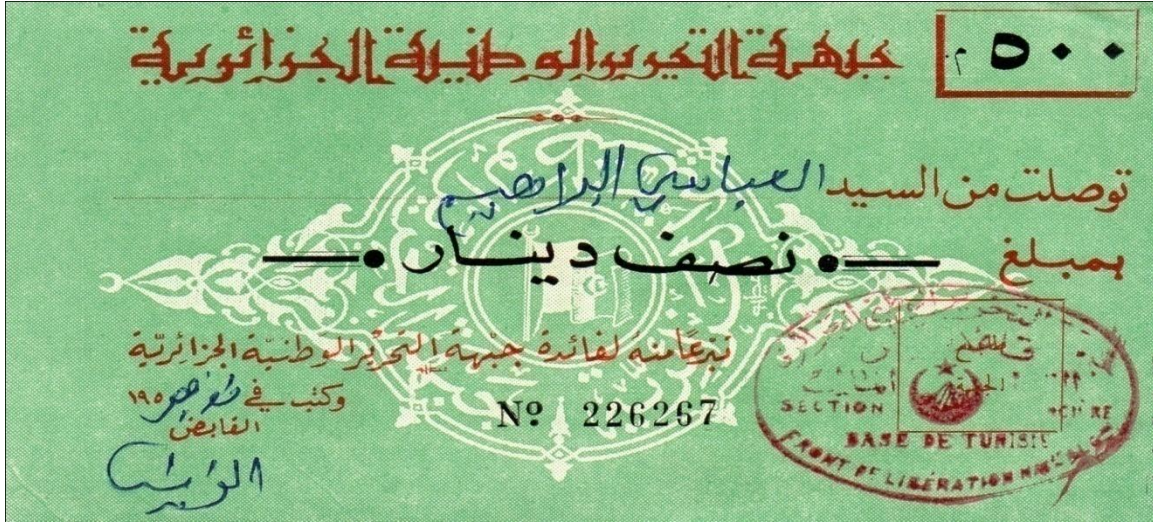 جبهة التحرير الوطنية الجزائرية
٥٠٠ م.
توصلت من السيد العباسي ابراهيم
بمبلغ نصف دينار
تبرعا منه لفائدة جبهة التحرير الوطنية الجزائرية
وكتب في ١٩٥
القابض
Nº 226267
SECTION
BASE DE TUNISIE
FRONT DE LIBÉRATION